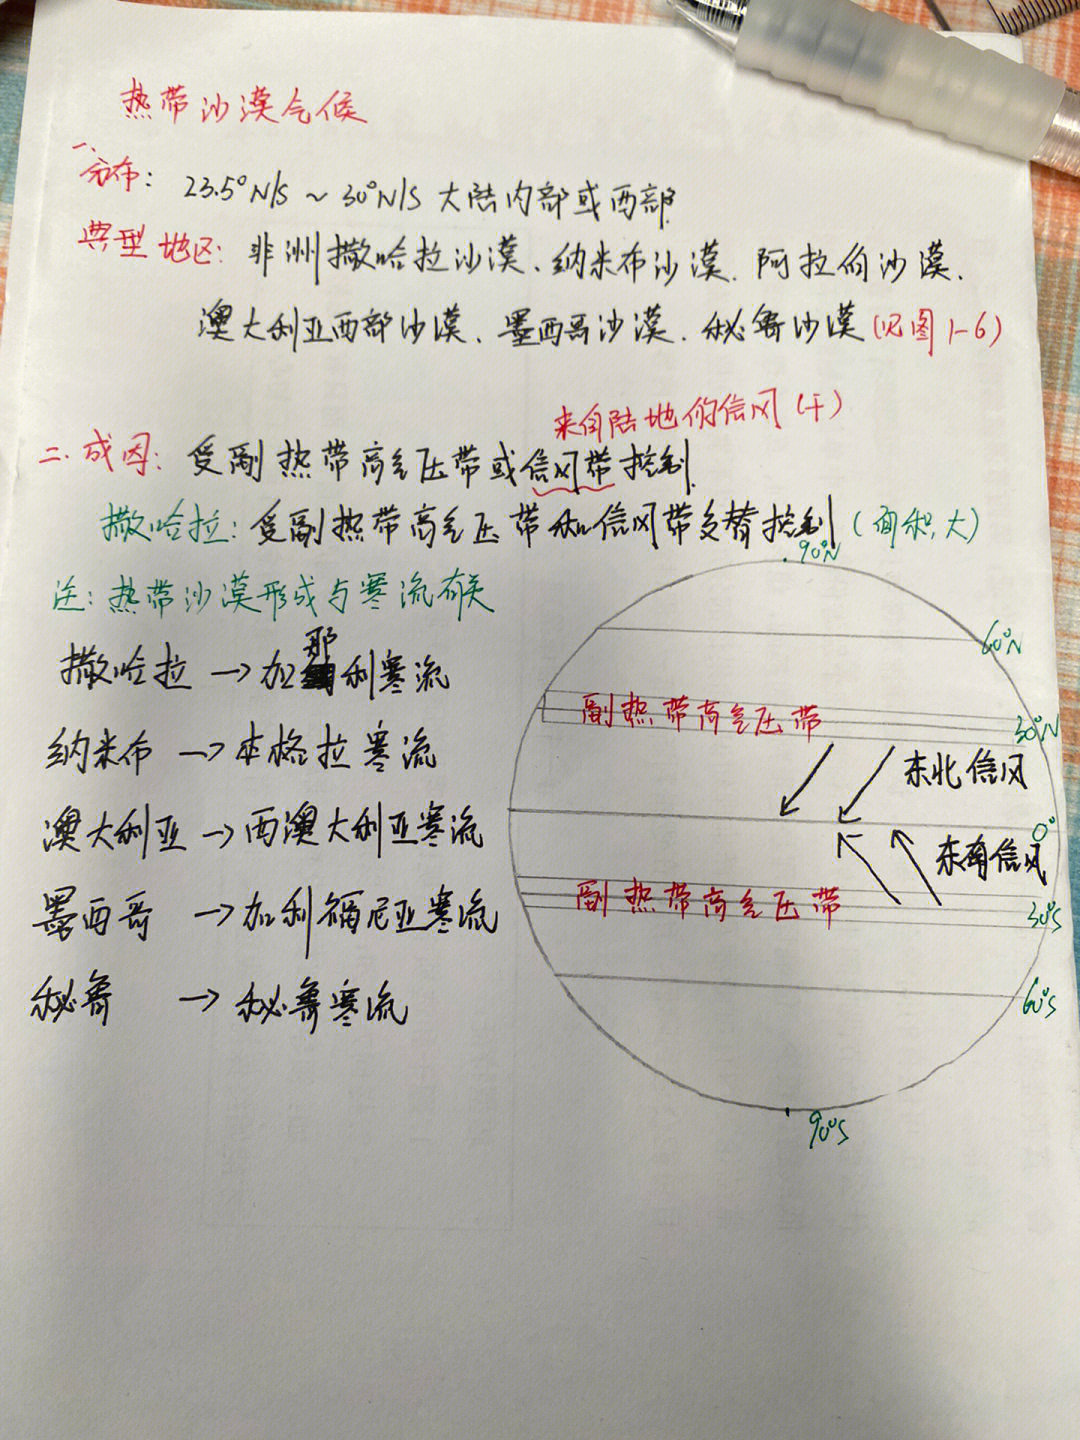 热带沙漠气候
一、
分布: 23.5°N/S ~ 30°N/S 大陆内部或西部
典型地区: 非洲撒哈拉沙漠、纳米布沙漠、阿拉伯沙漠、
澳大利亚西部沙漠、墨西哥沙漠、秘鲁沙漠(见图1-6)
来自陆地的信风(干)
二、成因: 受副热带高气压带或信风带控制
撒哈拉: 受副热带高气压带和信风带交替控制(面积大)
注: 热带沙漠形成与寒流有关
撒哈拉→加那利寒流
纳米布→本格拉寒流
澳大利亚→西澳大利亚寒流
墨西哥→加利福尼亚寒流
秘鲁→秘鲁寒流
90°N
60°N
副热带高气压带
30°N
东北信风
0°
东南信风
副热带高气压带
30°S
60°S
90°S